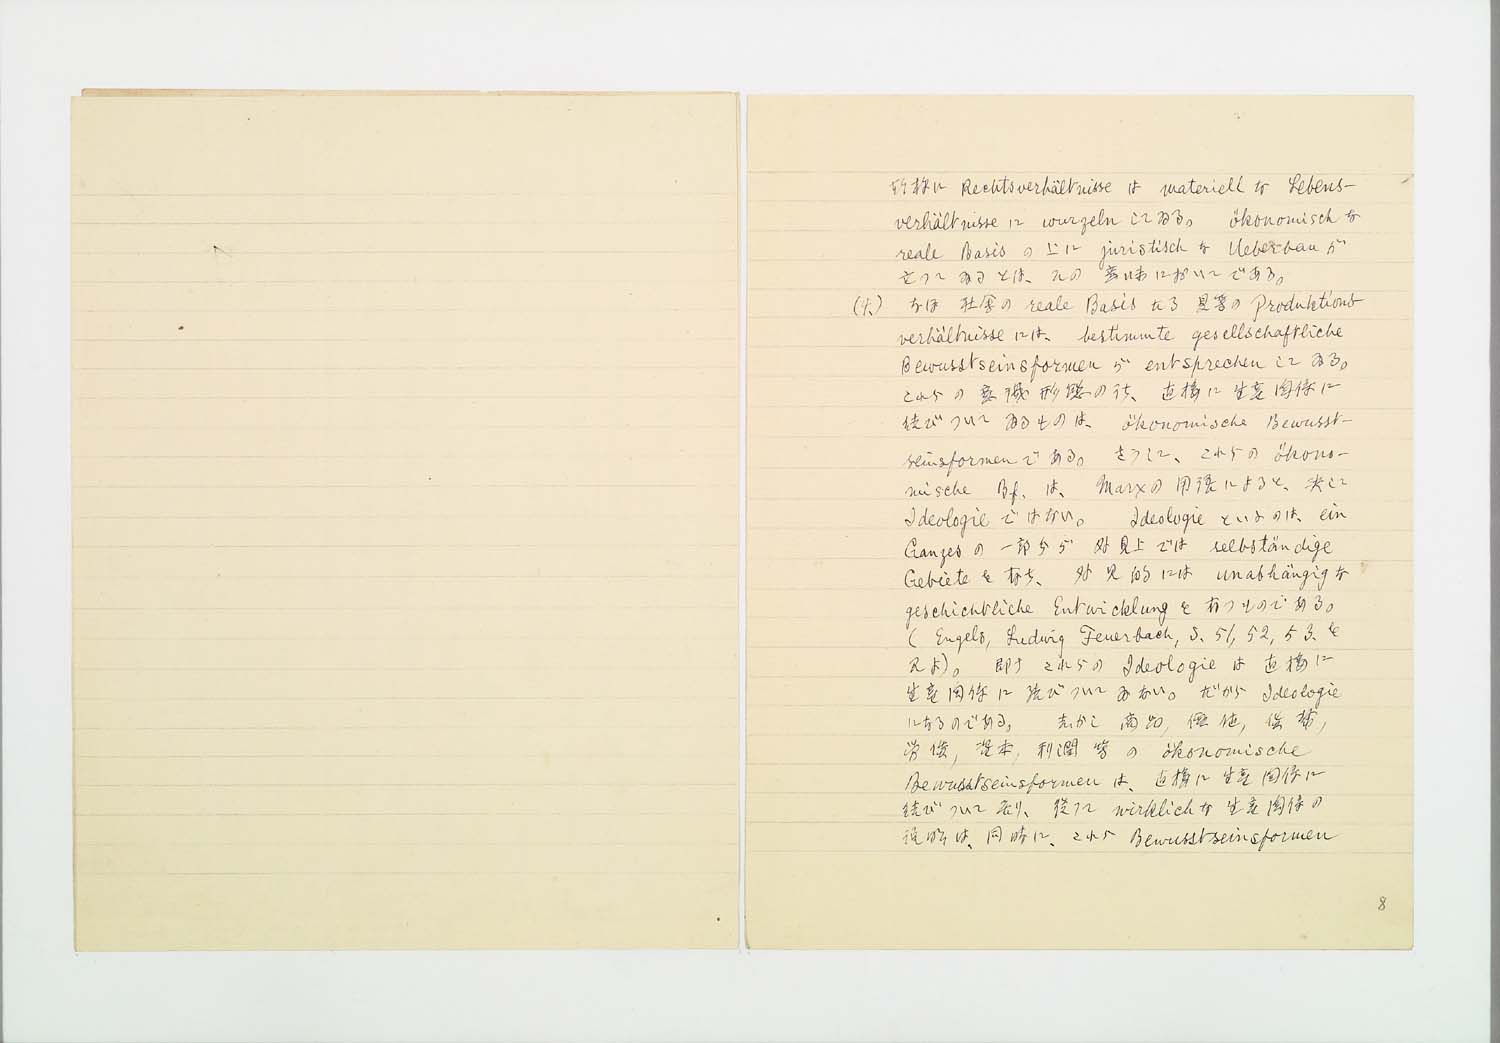 斯様に Rechtsverhältnisse は materiell な Lebens-
verhältnisse に wurzeln してゐる。 ökonomisch な
reale Basis の上に juristisch な Ueberbau が
立つてゐるとは、この意味においてである。
なほ 社会の reale Basis たる 見吾の Produktions-
verhältnisse には、 bestimmte gesellschaftliche
Bewusstseinsformen が entsprechen してゐる。
これらの意識形態の内、直接に生産関係に
結びついてゐるものは、 ökonomische Bewusst-
seinsformen である。 さうして、これらの ökono-
mische Bf. は、 Marxの用語によると、決して
Ideologie ではない。 Ideologie といふのは、 ein
Ganzes の一部分が 外見上では selbständige
Gebiete を有ち、 外見的には unabhängig な
geschichtliche Entwicklung を有つものである。
( Engels, Ludwig Feuerbach, S. 51, 52, 53 を
見よ)。 即ち これらの Ideologie は 直接に
生産関係に結びついてゐない。だから Ideologie
になるのである。 しかし 商品, 価値, 貨幣,
労働, 資本, 利潤 等の ökonomische
Bewusstseinsformen は、直接に生産関係に
結びついて在り、従つて wirklich な生産関係の
は、同時に、これら Bewusstseinsformen
8